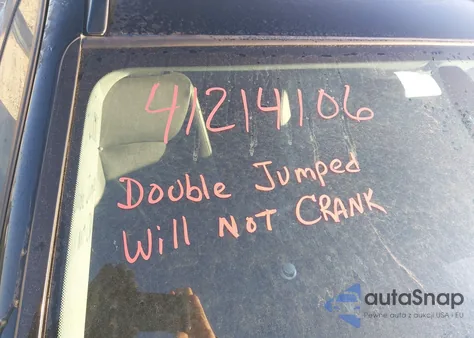 41214106
Double Jumped
Will NOT CRANK
autaSnap
Pewne auta z aukcji USA i EU